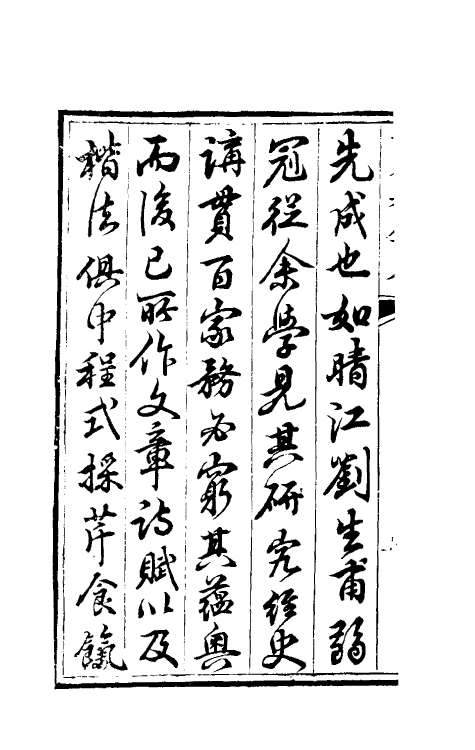 先成也如晴江劉生甫弱
冠從余學見其研究經史
講貫百家務必窮其蘊奧
而後已所作文章詩賦以及
楷法俱中程式採芹食餼